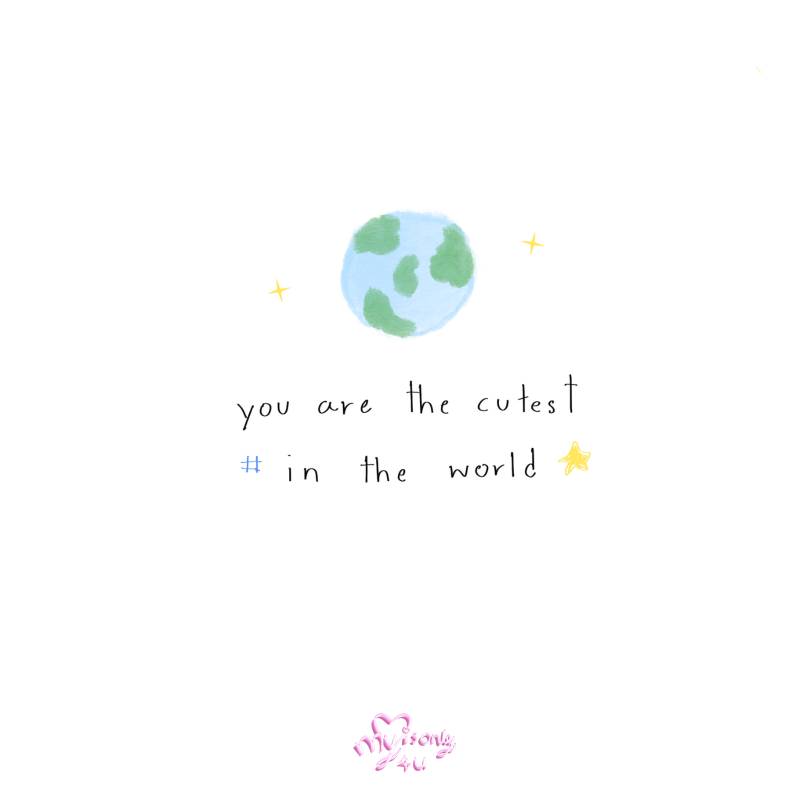 you are the cutest
# in the world
My is only
4u